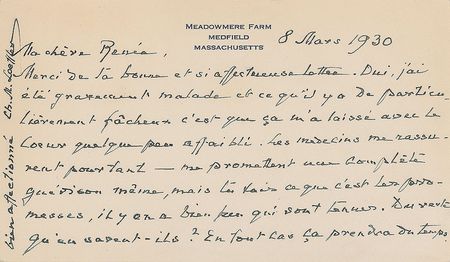 MEADOWMERE FARM
MEDFIELD
MASSACHUSETTS
8 Mars 1930
Ma chère Renée,
Merci de ta bonne et si affectueuse lettre. Oui, j'ai
été gravement malade et ce qu'il y a de particu-
lièrement fâcheux c'est que ça m'a laissé avec le
Coeur quelque peu affaibli. Les médecins me rassu-
rent pourtant — me promettent une complète
guérison même, mais tu sais ce que c'est les pro-
messes, il y en a bien peu qui sont tenues. Du reste
qu'en savent-ils? En tout cas ça prendra du temps.
bien affectionné Ch. M. Loeffler